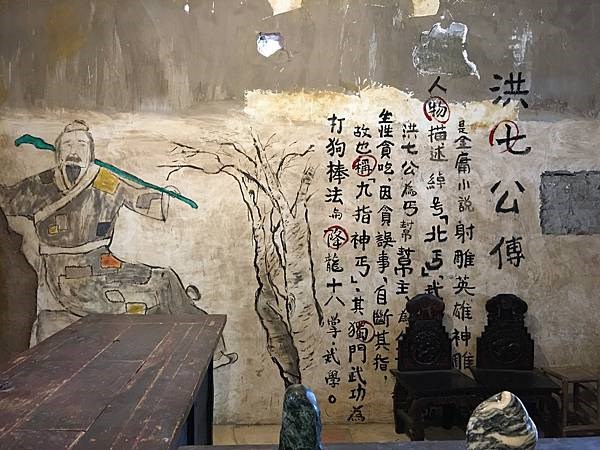 洪七公傳
是金庸小説射雕英雄神雕
人物描述綽号「北丐」武
洪七公為丐幫幫主為
生性貪吃,因貪誤事,自斷其指,
故也稱「九指神丐」.其獨門武功為
打狗棒法与降龍十八掌.武學。